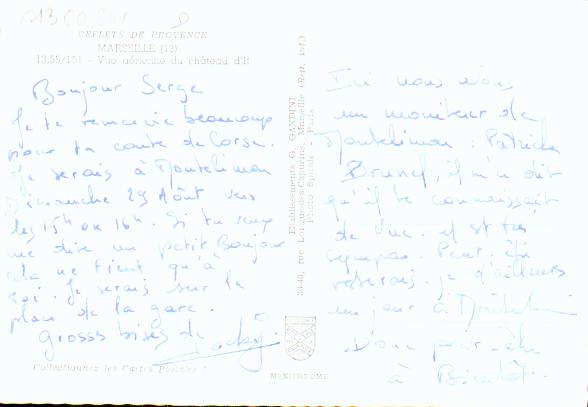 13 CO 241
REFLETS DE PROVENCE
MARSEILLE (13)
13.55/151 - Vue aérienne du château d'If
Bonjour Serge
Je te remercie beaucoup
pour ta carte de Corse.
Je serais à Montélimar
Dimanche 29 Août vers
les 15h ou 16h. Si tu veux
me dire un petit Bonjour
cela ne tient qu'à
toi. Je serais sur la
place de la gare.
Grosss bises de
Collectionnez les Cartes Postales !
Etablissements G. GANDINI
38-40, rue Longue-des-Capucins, Marseille (Rep. int.)
Photo Spirale - Paris
MEXICHROME
Ici nous avons
un moniteur de
Montélimar : Patrick
Brunel, il m'a dit
qu'il te connaissait
de vue. il est très
sympas. Peut être
resterais-je d'ailleurs
un jour à
Donc peut-être
à Bientôt.